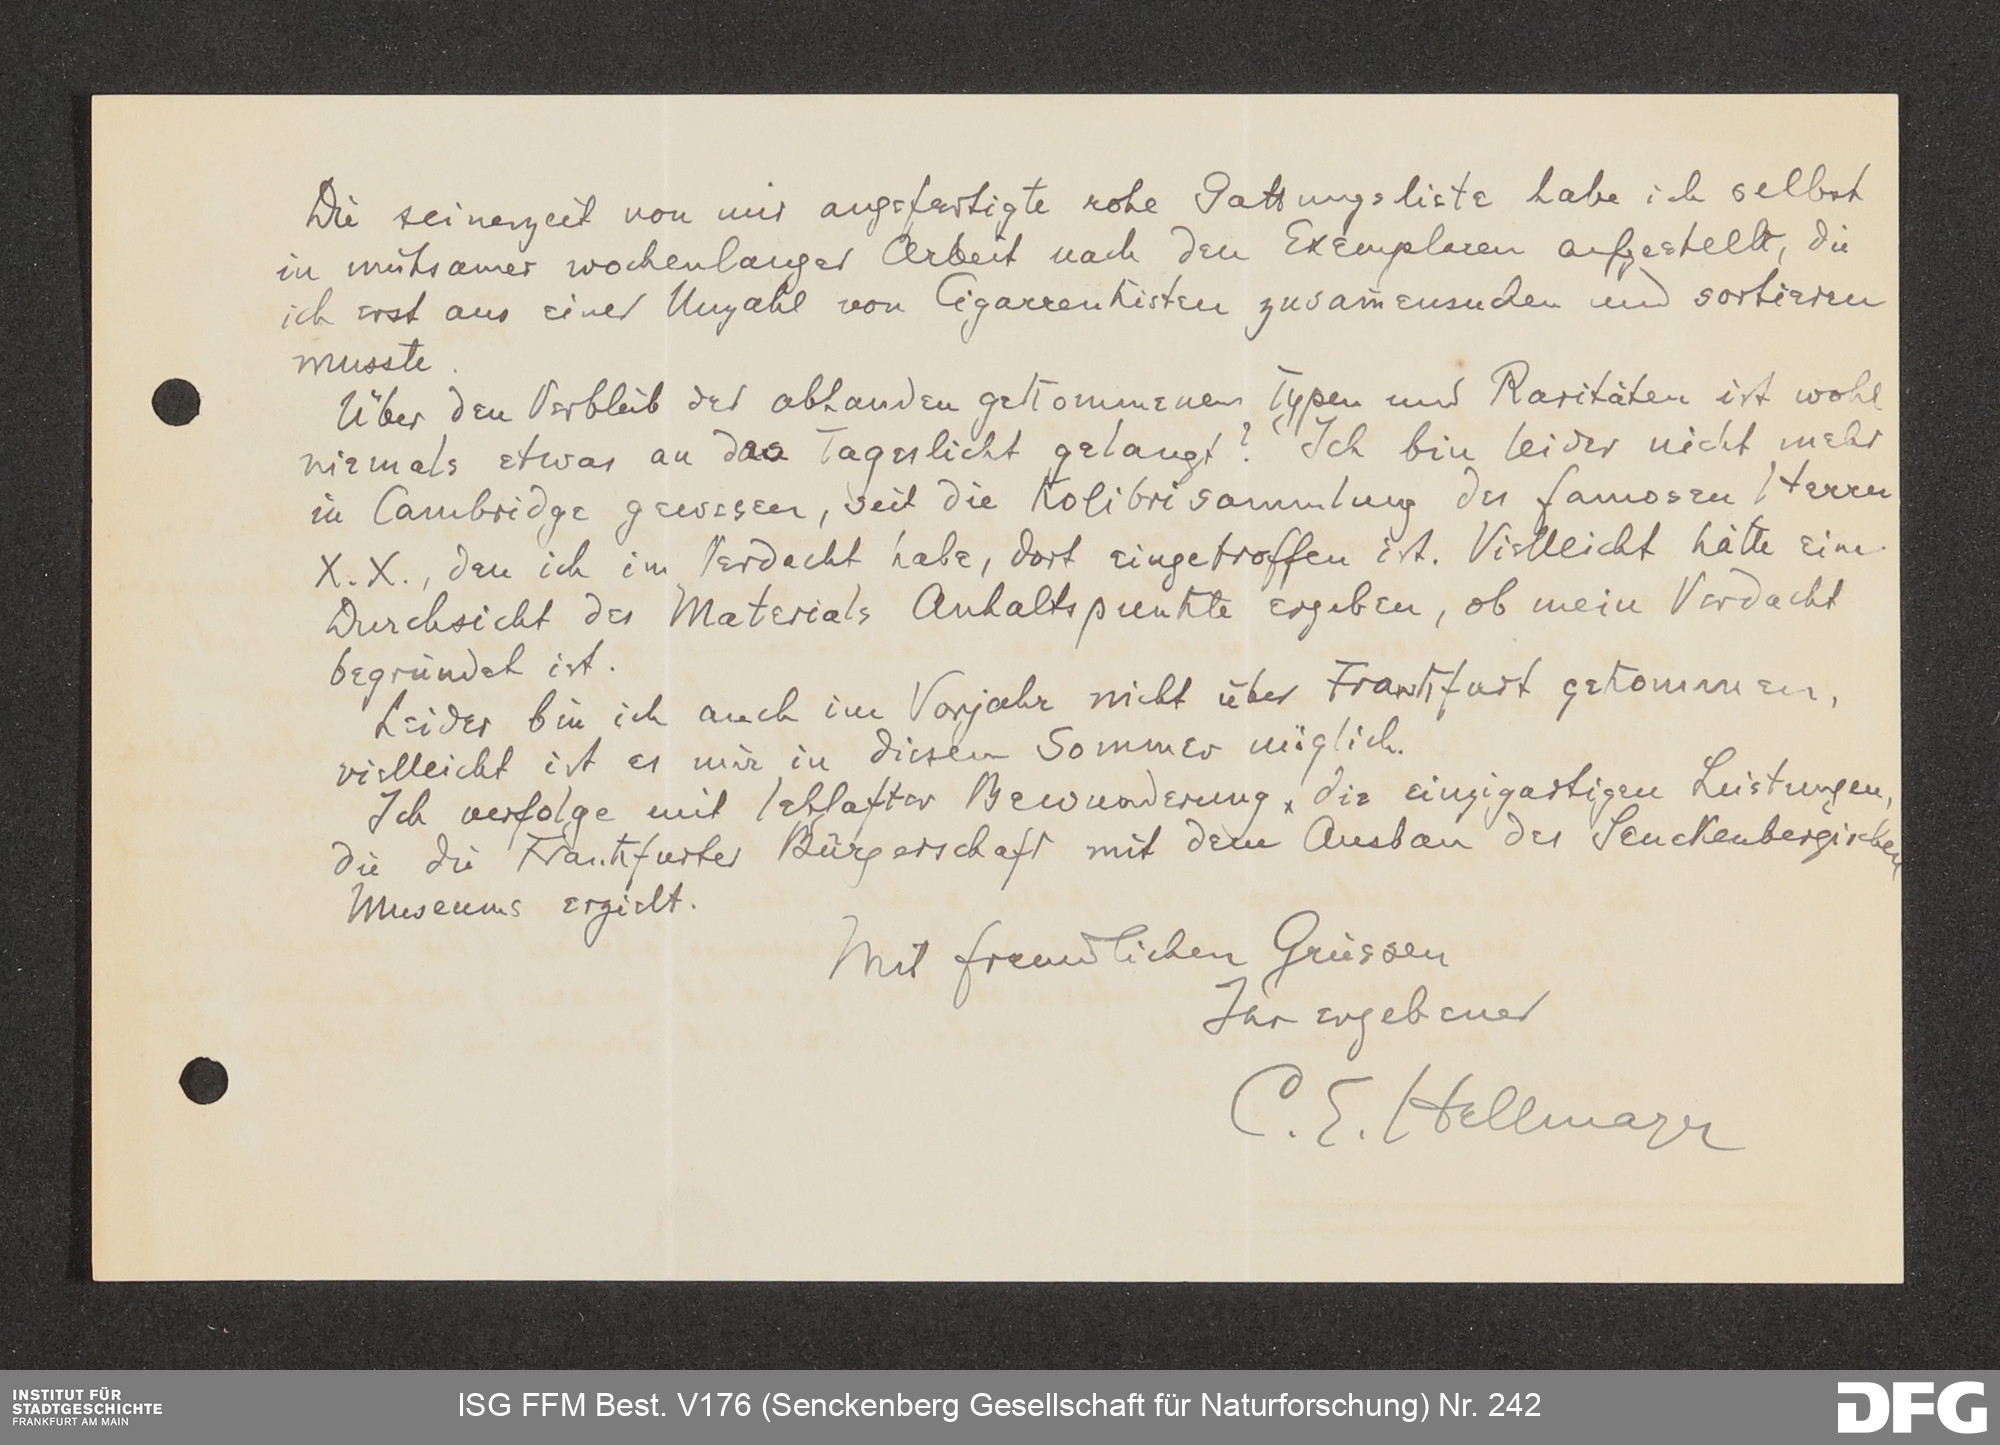 Die seinerzeit von mir angefertigte rohe Gattungsliste habe ich selbst
in mühsamer wochenlanger Arbeit nach den Exemplaren aufgestellt, die
ich erst aus einer Unzahl von Cigarrenkisten zusam̅ensuchen und sortieren
musste.
Über den Verbleib der abhanden gekommenen Typen und Raritäten ist wohl
niemals etwas an das Tageslicht gelangt? Ich bin leider nicht mehr
in Cambridge gewesen, seit die Kolibrisammlung des famosen Herrn
X.X., den ich im Verdacht habe, dort eingetroffen ist. Vielleicht hätte eine
Durchsicht des Materials Anhaltspunkte ergeben, ob mein Verdacht
begründet ist.
Leider bin ich auch im Vorjahr nicht über Frankfurt gekommen,
vielleicht ist es mir in diesem Sommer möglich.
Ich verfolge mit lebhafter Bewunderung die einzigartigen Leistungen,
die die Frankfurter Bürgerschaft mit dem Ausbau des Senckenbergischen
Museums erzielt.
Mit freundlichen Grüssen
Ihr ergebener
C. E. Hellmayr
INSTITUT FÜR
STADTGESCHICHTE
FRANKFURT AM MAIN
ISG FFM Best. V176 (Senckenberg Gesellschaft für Naturforschung) Nr. 242
DFG